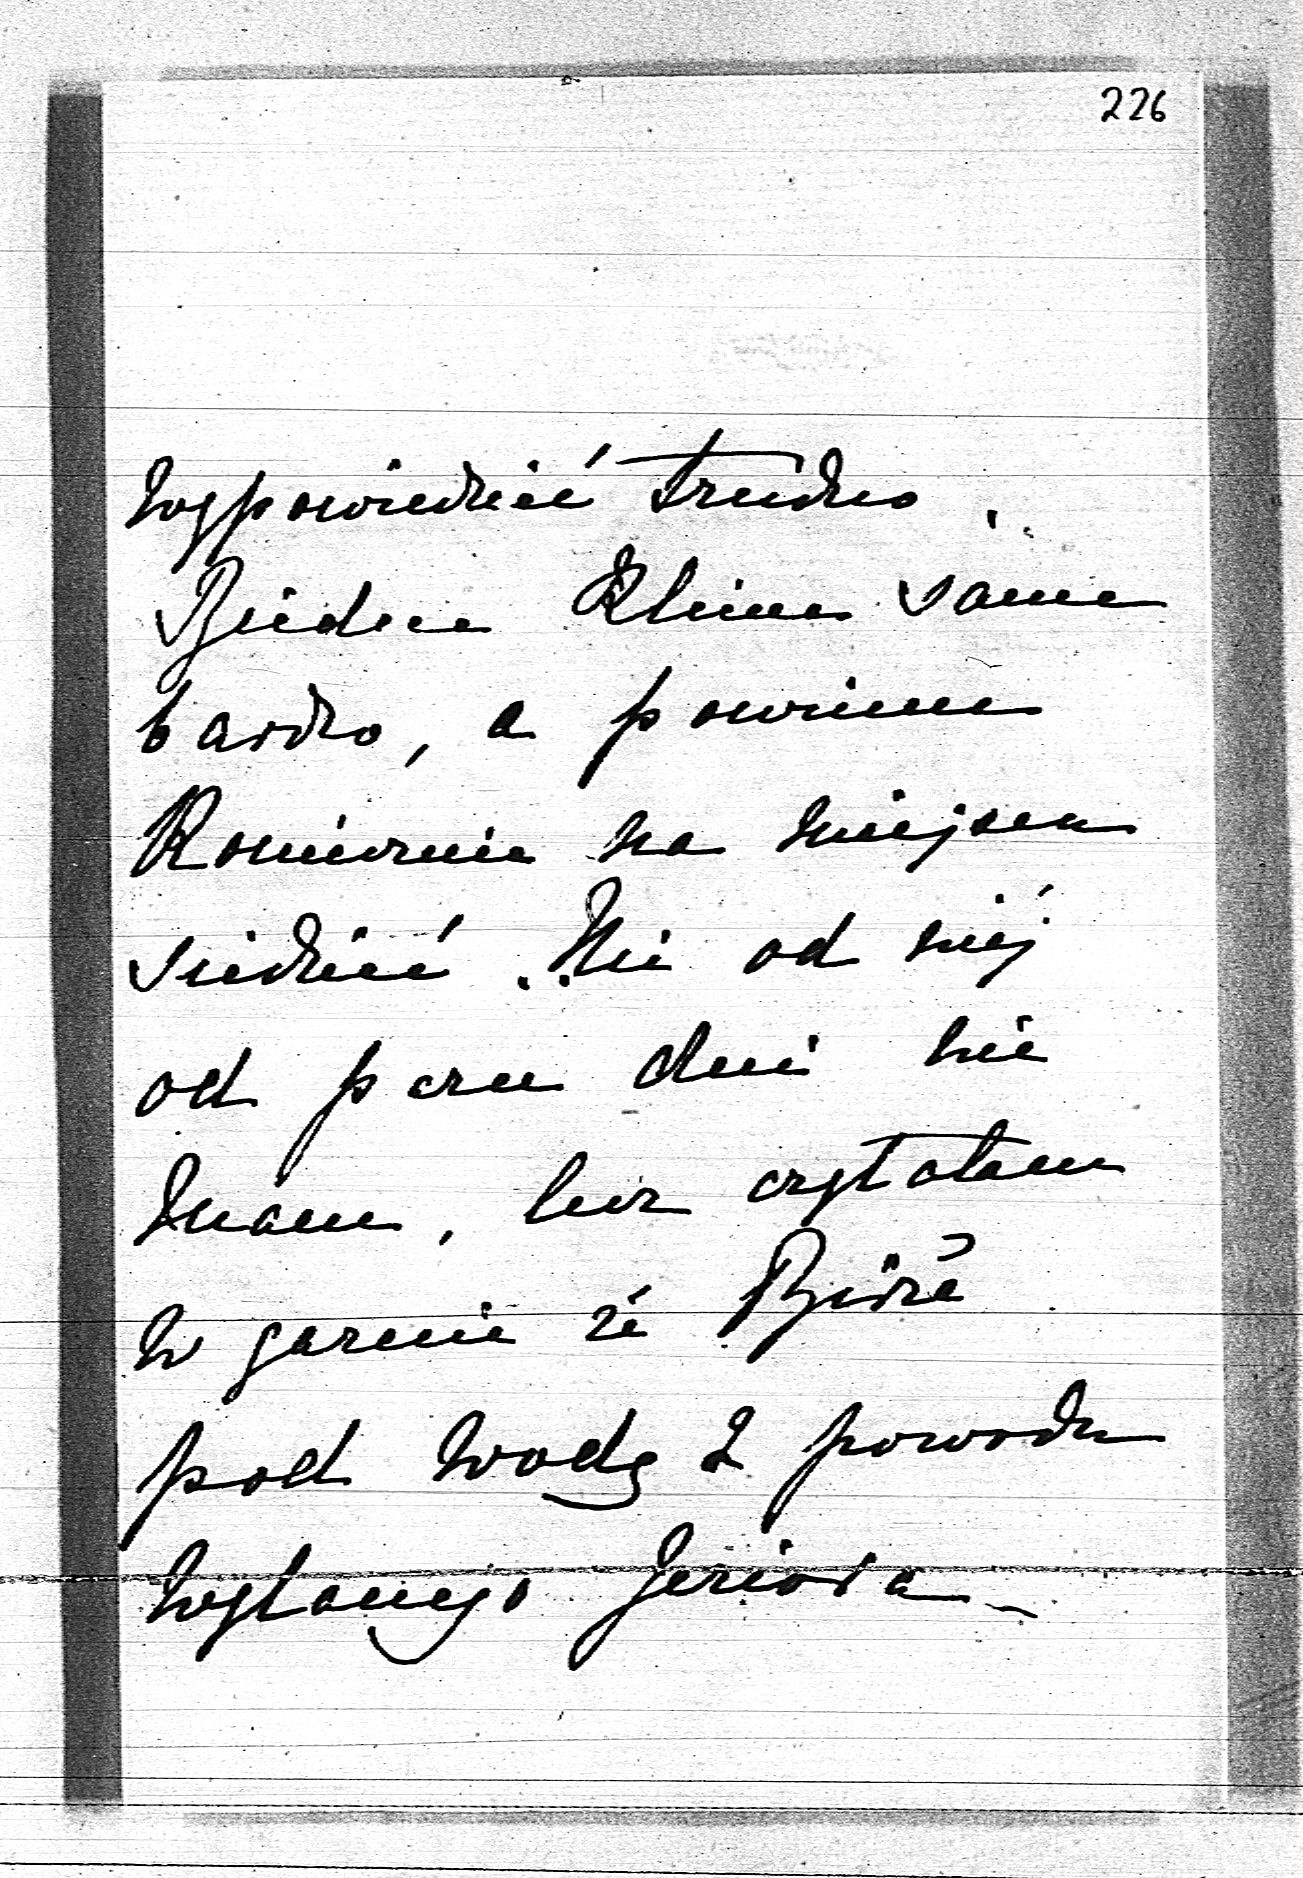 226
wypowiedzieć trudno.
Biedna Klima sama
bardzo, a powinna
Koniecznie na miejscu
siedzieć. Nic od niéj
od paru dni nie
mam, lecz czytałam
w gazecie że Birże
pod wodą z powodu
wylanego Jeziora_